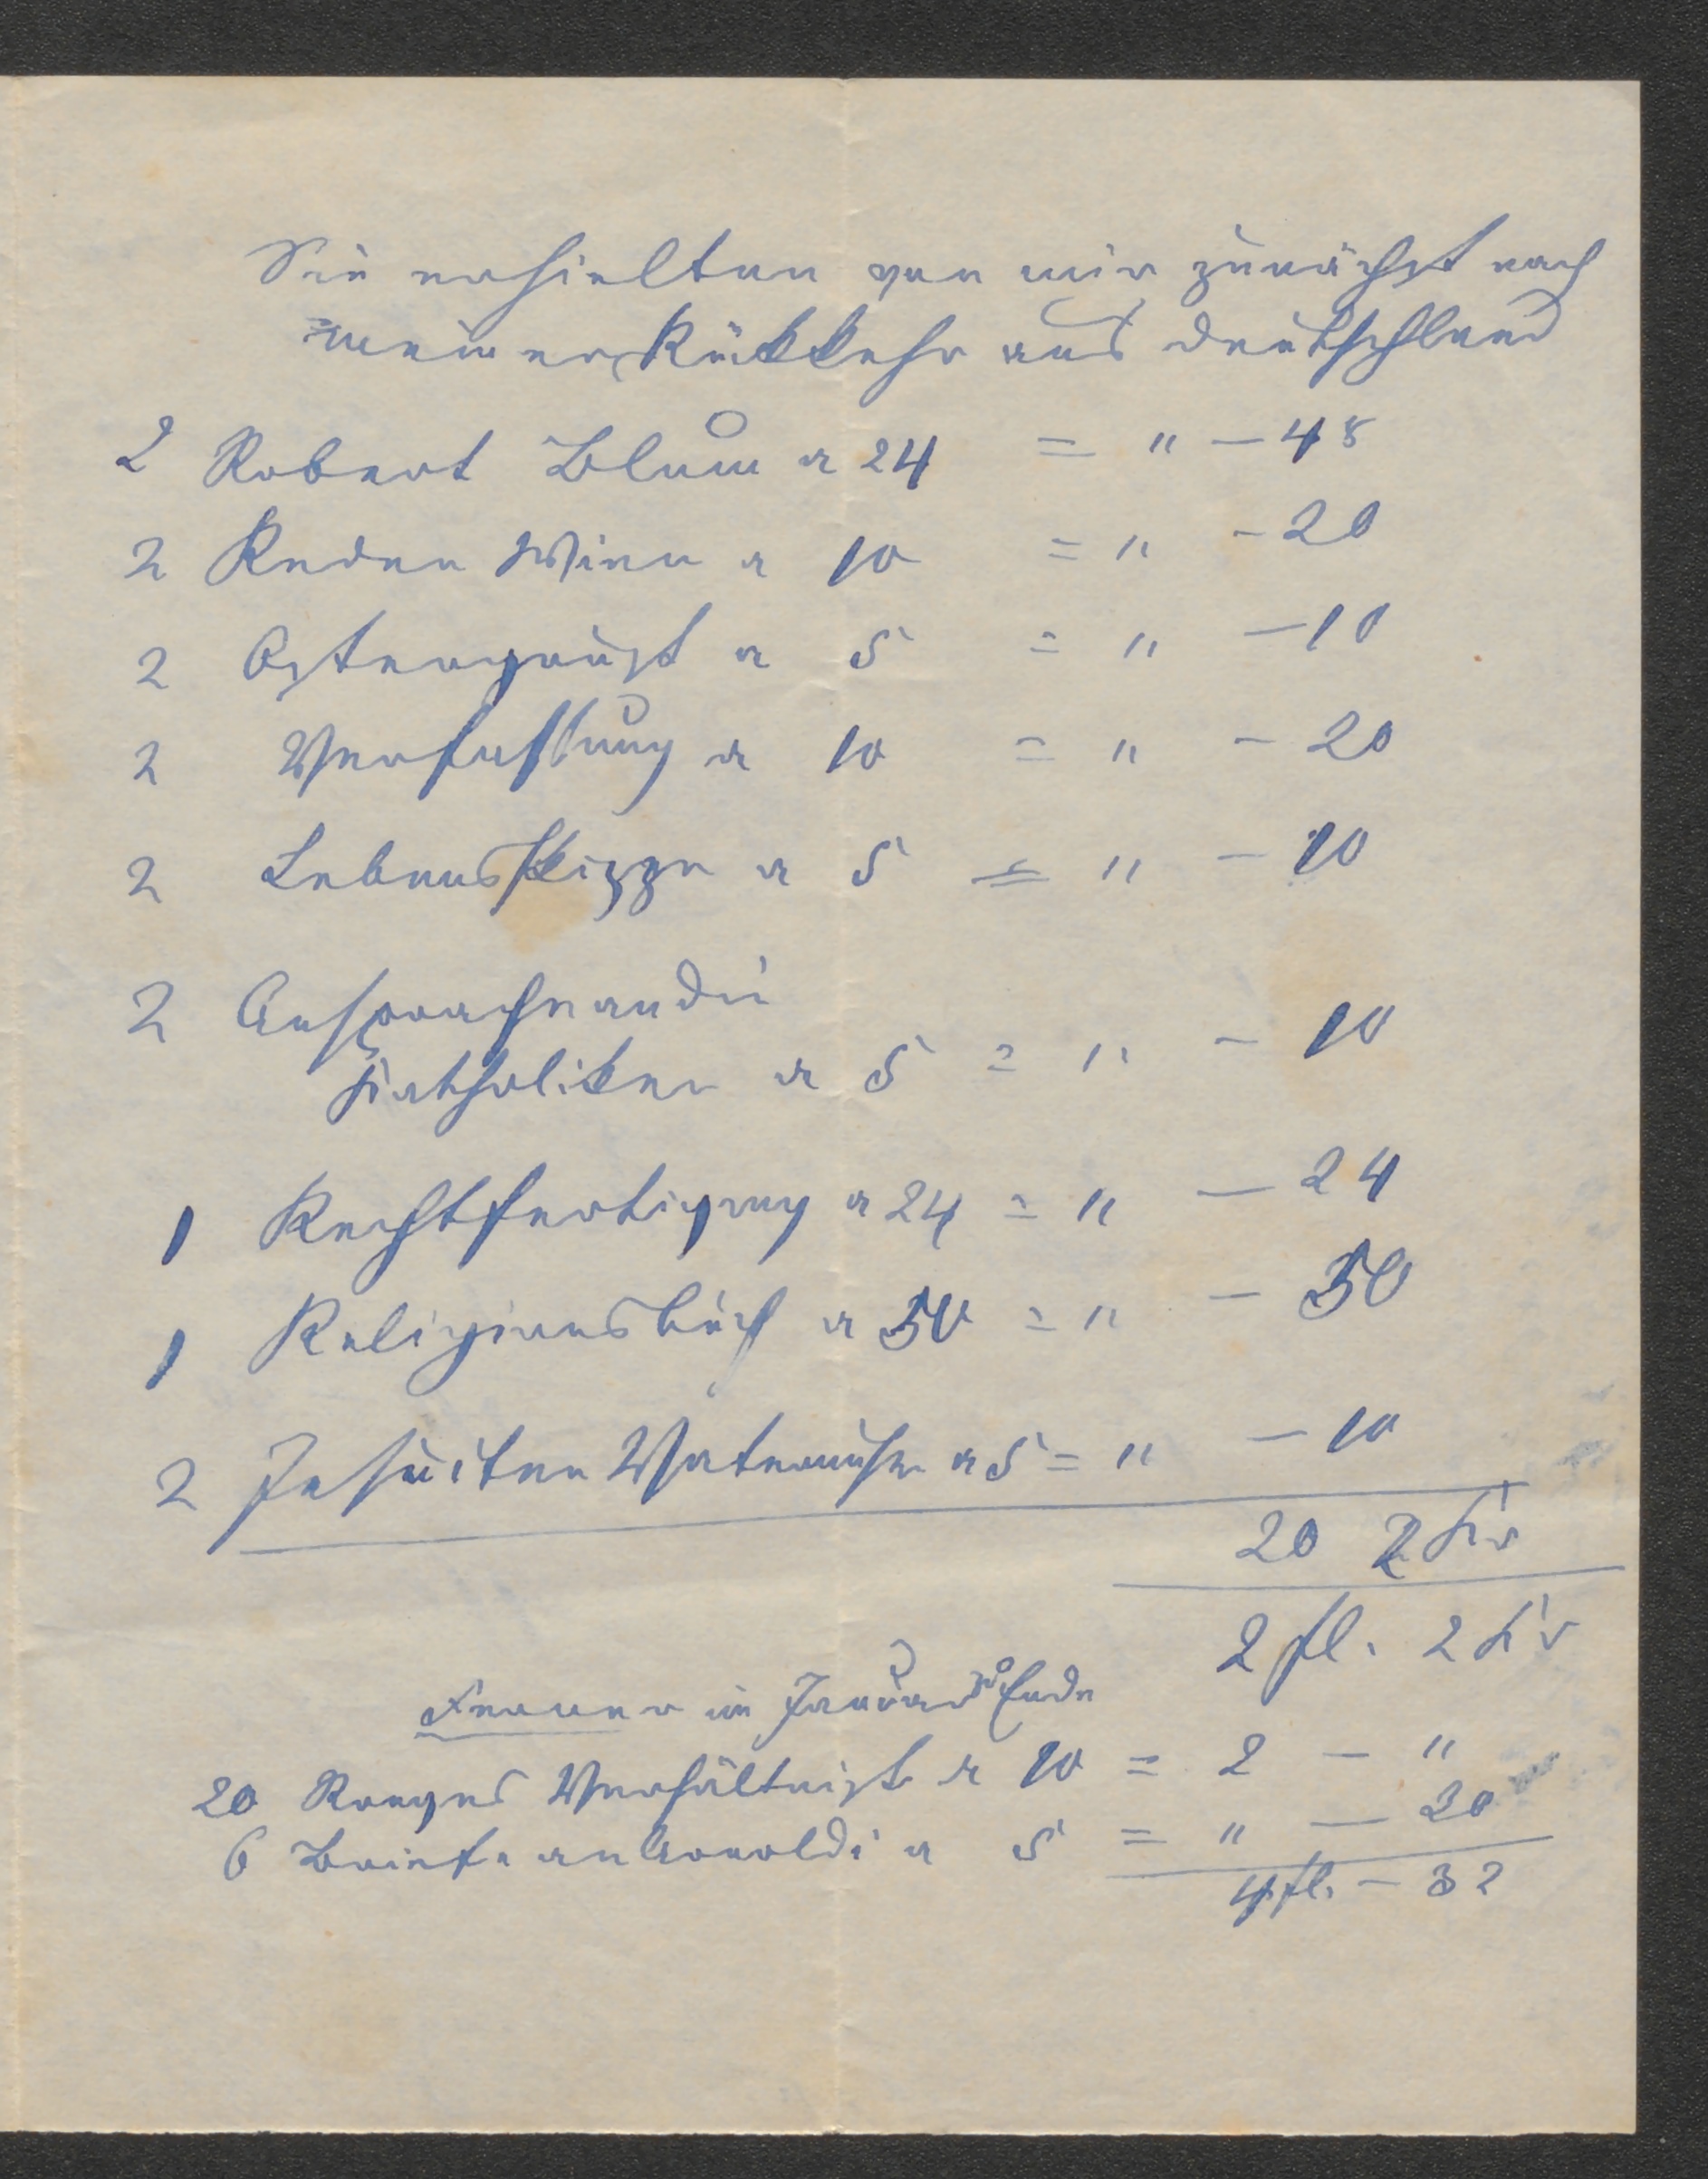 Sie erhielten von mir zunächst nach
meiner Rükkehr aus Deutschland
2 Robert Blum a 24 = " – 48
2 Reden Wien a 10 = " – 20
2 Ostergruß a 5 = " – 10
2 Verfassung a 10 = " – 20
2 Lebensskizze a 5 = " – 10
2 Ansprache an die
Katholiken a 5 = " – 10
1 Rechtfertigung a 24 = " – 24
1 Religionsbuch a 50 = " – 50
2 Jesuiten Vaterunser a 5 = " – 10
20 2 Kr
2 fl. 2 Kr
Ferner im Januar Ende
20 Ronges Verhältniß a 10 = 2 – "
6 Briefe an Arnoldi a 5 = " – 30
4 fl. – 32